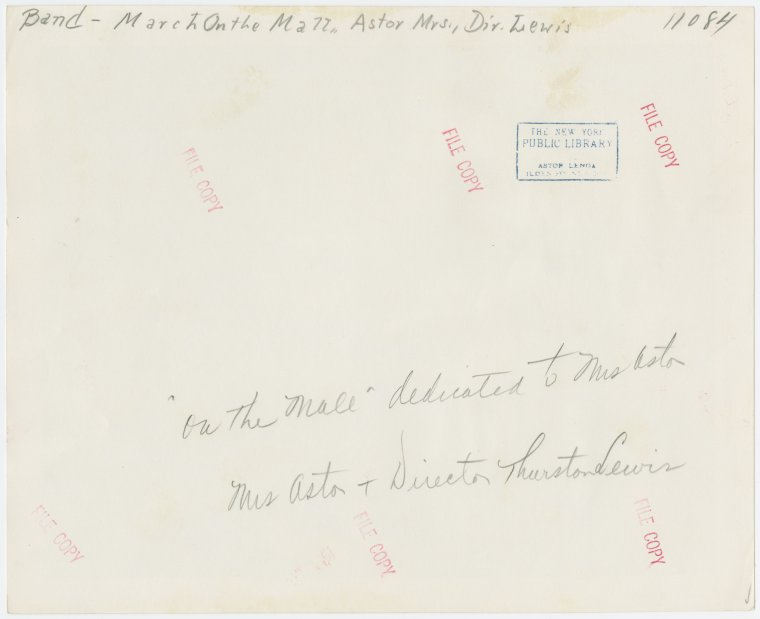 Band - March On the Mall,, Astor Mrs., Dir. Lewis 11084
FILE COPY
FILE COPY
FILE COPY
THE NEW YORK
PUBLIC LIBRARY
ASTOR LENOX
"On the Mall" dedicated to Mrs Astor
Mrs Astor + Director Thurston Lewis
FILE COPY
FILE COPY
FILE COPY